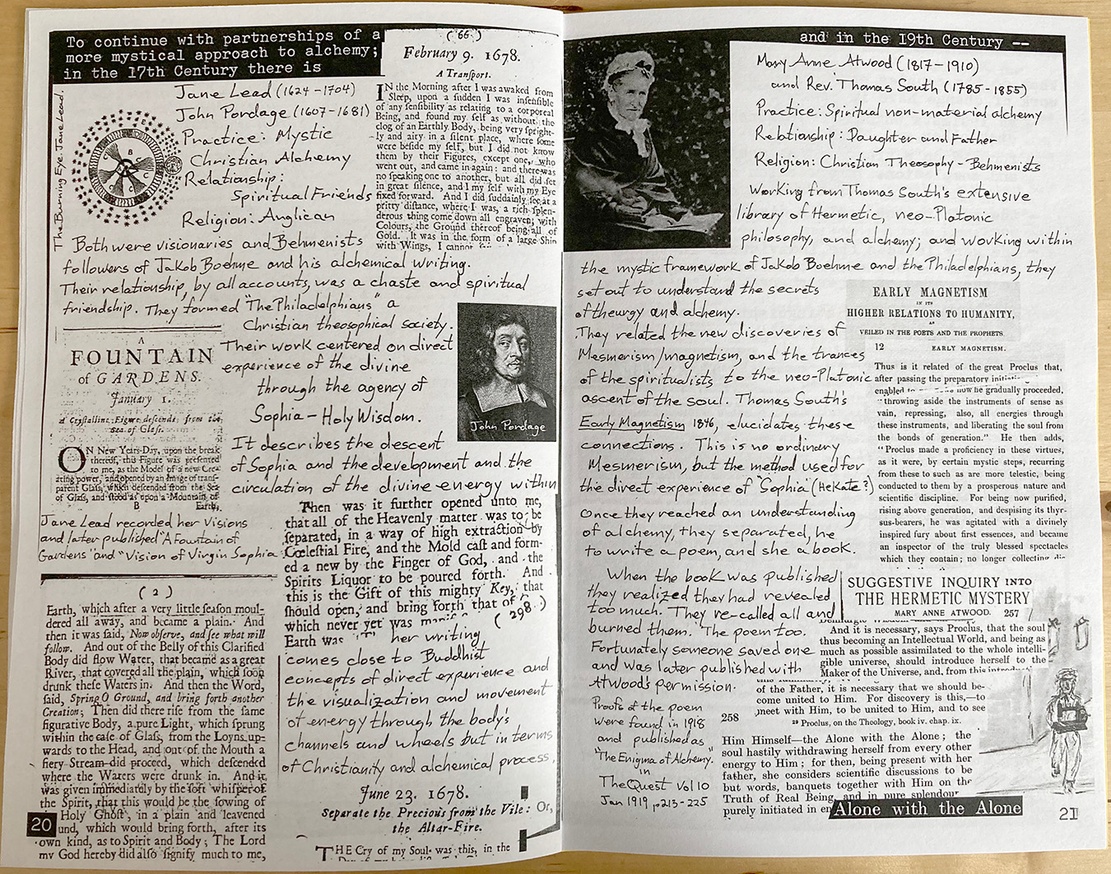 To continue with partnerships of a
more mystical approach to alchemy;
in the 17th Century there is
Jane Lead (1624-1704)
John Pordage (1607-1681)
Practice: Mystic
Christian Alchemy
Relationship:
Spiritual Friends
Religion: Anglican
The Burning Eye. Jane Lead.
Both were visionaries and Behmenists
followers of Jakob Boehme and his alchemical writing.
Their relationship, by all accounts, was a chaste and spiritual
friendship. They formed "The Philadelphians" a
Christian theosophical society.
Their work centered on direct
experience of the divine
through the agency of
Sophia - Holy Wisdom.
It describes the descent
of Sophia and the development and the
circulation of the divine energy within
(66)
February 9. 1678.
A Tranſport.
IN the Morning after I was awaked from
Sleep, upon a ſudden I was inſenſible
of any ſenſibility as relating to a corporeal
Being, and found my ſelf as without the
clog of an Earthly Body, being very ſpright-
ly and airy in a ſilent place, where ſome
were beſide my ſelf, but I did not know
them by their Figures, except one, who
went out, and came in again: and there was
no ſpeaking one to another, but all did ſet
in great ſilence, and I my ſelf with my Eye
fixed forward. And I did ſuddainly ſee at a
pritty diſtance, where I was, a rich ſplen-
derous thing come down all engraven with
Colours, the Ground thereof being all of
Gold. It was in the form of a large Ship
with Wings, I cannot
John Pordage
A
FOUNTAIN
of GARDENS.
January 1.
A Cryſtalline Figure deſcends from the
Sea of Glaſs.
ON New Years-Day, upon the break
thereof, this Figure was preſented
to me, as the Model of a new Crea-
ting power, and opened by an Image of tranſ-
parent Glaſs, which deſcended from the Sea
of Glaſs, and ſtood as upon a Mountain of
B Earth,
Jane Lead recorded her Visions
and later published "A Fountain of
Gardens" and "Vision of Virgin Sophia"
Then was it further opened unto me,
that all of the Heavenly matter was to be
ſeparated, in a way of high extraction by
Cœleſtial Fire, and the Mold caſt and form-
ed a new by the Finger of God, and the
Spirits Liquor to be poured forth. And
this is the Gift of this mighty Key, that
ſhould open, and bring forth that of
which never yet was
Earth was
(298)
her writing
comes close to Buddhist
concepts of direct experience and
the visualization and movement
of energy through the body's
channels and wheels but in terms
of Christianity and alchemical process.
(2)
Earth, which after a very little ſeaſon moul-
dered all away, and became a plain. And
then it was ſaid, Now obſerve, and ſee what will
follow. And out of the Belly of this Clarified
Body did flow Water, that became as a great
River, that covered all the plain, which ſoon
drunk theſe Waters in. And then the Word,
ſaid, Spring O Ground, and bring forth another
Creation; Then did there riſe from the ſame
figurative Body, a pure Light, which ſprung
within the caſe of Glaſs, from the Loyns up-
wards to the Head, and out of the Mouth a
fiery Stream did proceed, which deſcended
where the Waters were drunk in. And it
was given immediately by the ſoft whiſper of
the Spirit, that this would be the ſowing of
Holy Ghoſt, in a plain and leavened
und, which would bring forth, after its
own kind, as to Spirit and Body; The Lord
my God hereby did alſo ſignify much to me,
20
June 23. 1678.
Separate the Precious from the Vile: Or,
the Altar-Fire.
THE Cry of my Soul was this, in the
and in the 19th Century --
Mary Anne Atwood (1817-1910)
and Rev. Thomas South (1785-1855)
Practice: Spiritual non-material alchemy
Relationship: Daughter and Father
Religion: Christian Theosophy - Behmenists
Working from Thomas South's extensive
library of Hermetic, neo-Platonic
philosophy, and alchemy; and working within
the mystic framework of Jakob Boehme and the Philadelphians, they
set out to understand the secrets
of theurgy and alchemy.
They related the new discoveries of
Mesmerism/magnetism, and the trances
of the spiritualists to the neo-Platonic
ascent of the soul. Thomas South's
Early Magnetism 1846, elucidates these
connections. This is no ordinary
Mesmerism, but the method used for
the direct experience of "Sophia" (Hekate?)
Once they reached an understanding
of alchemy, they separated, he
to write a poem, and she a book.
When the book was published
they realized they had revealed
too much. They re-called all and
burned them. The poem too.
Fortunately someone saved one
and was later published with
Atwood's permission.
Proofs of the poem
were found in 1918
and published as
"The Enigma of Alchemy,"
in
The Quest Vol 10
Jan 1919 p213-225
EARLY MAGNETISM
IN ITS
HIGHER RELATIONS TO HUMANITY,
AS
VEILED IN THE POETS AND THE PROPHETS.
12 EARLY MAGNETISM.
Thus is it related of the great Proclus that,
after passing the preparatory
enabled to now he gradually proceeded,
"throwing aside the instruments of sense as
vain, repressing, also, all energies through
these instruments, and liberating the soul from
the bonds of generation." He then adds,
"Proclus made a proficiency in these virtues,
as it were, by certain mystic steps, recurring
from these to such as are more telestic, being
conducted to them by a prosperous nature and
scientific discipline. For being now purified,
rising above generation, and despising its thyr-
sus-bearers, he was agitated with a divinely
inspired fury about first essences, and became
an inspector of the truly blessed spectacles
which they contain; no longer collecting
SUGGESTIVE INQUIRY INTO
THE HERMETIC MYSTERY
MARY ANNE ATWOOD. 257
And it is necessary, says Proclus, that the soul
thus becoming an Intellectual World, and being as
much as possible assimilated to the whole intelli-
gible universe, should introduce herself to the
Maker of the Universe, and, from this
of the Father, it is necessary that we should be-
come united to Him. For discovery is this,—to
meet with Him, to be united to Him, and to see
29 Proclus, on the Theology, book iv. chap. ix.
258
Him Himself—the Alone with the Alone; the
soul hastily withdrawing herself from every other
energy to Him; for then, being present with her
father, she considers scientific discussions to be
but words, banquets together with Him on the
Truth of Real Being, and in pure splendour
purely initiated in
Alone with the Alone
21